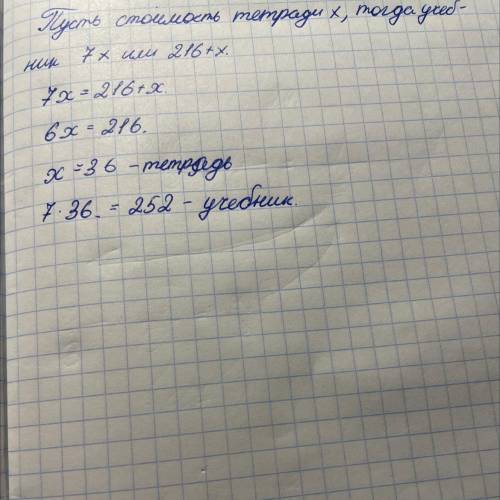 Пусть стоимость тетради x, тогда учеб-
ник 7x или 216+x.
7x = 216+x.
6x = 216.
x = 36 - тетрадь
7·36 = 252 - учебник.